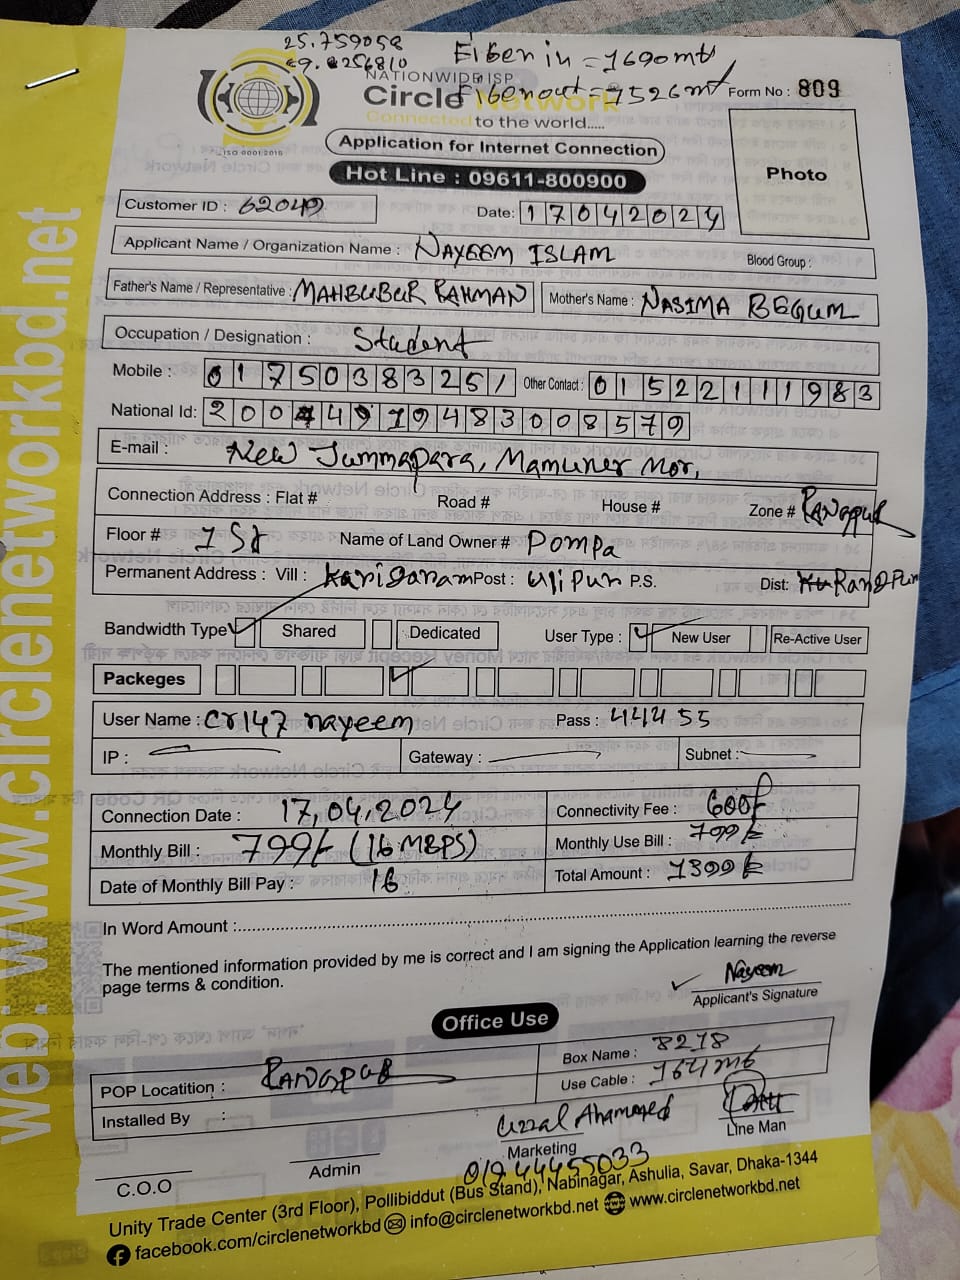 25.759058
89.256810
Fiber in = 1690 mt
Fiber out = 1526 mt
NATIONWIDE ISP
Circle Network
Connected to the world.....
ISO 9001:2015
Form No : 809
Application for Internet Connection
Photo
Hot Line : 09611-800900
Customer ID : 62049
Date: 17042024
Applicant Name / Organization Name : NAYEEM ISLAM
Blood Group :
Father's Name / Representative : MAHBUBUR RAHMAN Mother's Name : NASIMA BEGUM
Occupation / Designation : Student
Mobile : 01750383251 Other Contact : 01522111983
National Id: 2004919483008579
E-mail : New Jummapara, Mamuner Mor,
Connection Address : Flat # Road # House # Zone # RANgpur
Floor # 1st Name of Land Owner # Pompa
Permanent Address : Vill : Post : Ulipur P.S. Dist:
Bandwidth Type Shared Dedicated User Type : New User Re-Active User
Packeges
User Name : cr147 nayeem Pass : 444455
IP : Gateway : Subnet :
Connection Date : 17,04,2024 Connectivity Fee : 600/-
Monthly Bill : 799/- (16 MBPS) Monthly Use Bill : 799/-
Date of Monthly Bill Pay : 16 Total Amount : 1399/-
In Word Amount :
The mentioned information provided by me is correct and I am signing the Application learning the reverse
page terms & condition.
Nayeem
Applicant's Signature
Office Use
POP Locatition : RANGPUR Box Name : 8218
Installed By : Use Cable : 164 mt
Uzzal Ahammed
C.O.O Admin Marketing Line Man
01944455033
Unity Trade Center (3rd Floor), Pollibiddut (Bus Stand), Nabinagar, Ashulia, Savar, Dhaka-1344
facebook.com/circlenetworkbd info@circlenetworkbd.net www.circlenetworkbd.net
web: www.circlenetworkbd.net